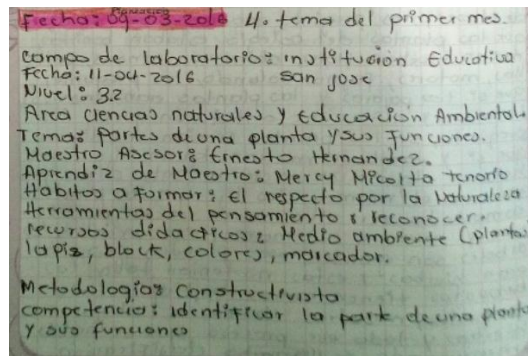 Fecha: 09-03-2016 4. tema del primer mes.
campo de laboratorio: institución Educativa
Fecha: 11-04-2016 san jose
Nivel: 3.2
Area ciencias naturales y Educación Ambiental
Tema: partes de una planta y sus funciones.
Maestro Asesor: Ernesto Hernandez.
Aprendiz de Maestro: Mercy Micolta tenorio
Habitos a formar: El respecto por la Naturaleza
Herramientas del pensamiento: reconocer.
recursos didacticos: Medio ambiente (plantas
lapiz, block, colores, marcador.
Metodologia: constructivista
competencia: identificar la parte de una planta
y sus funciones